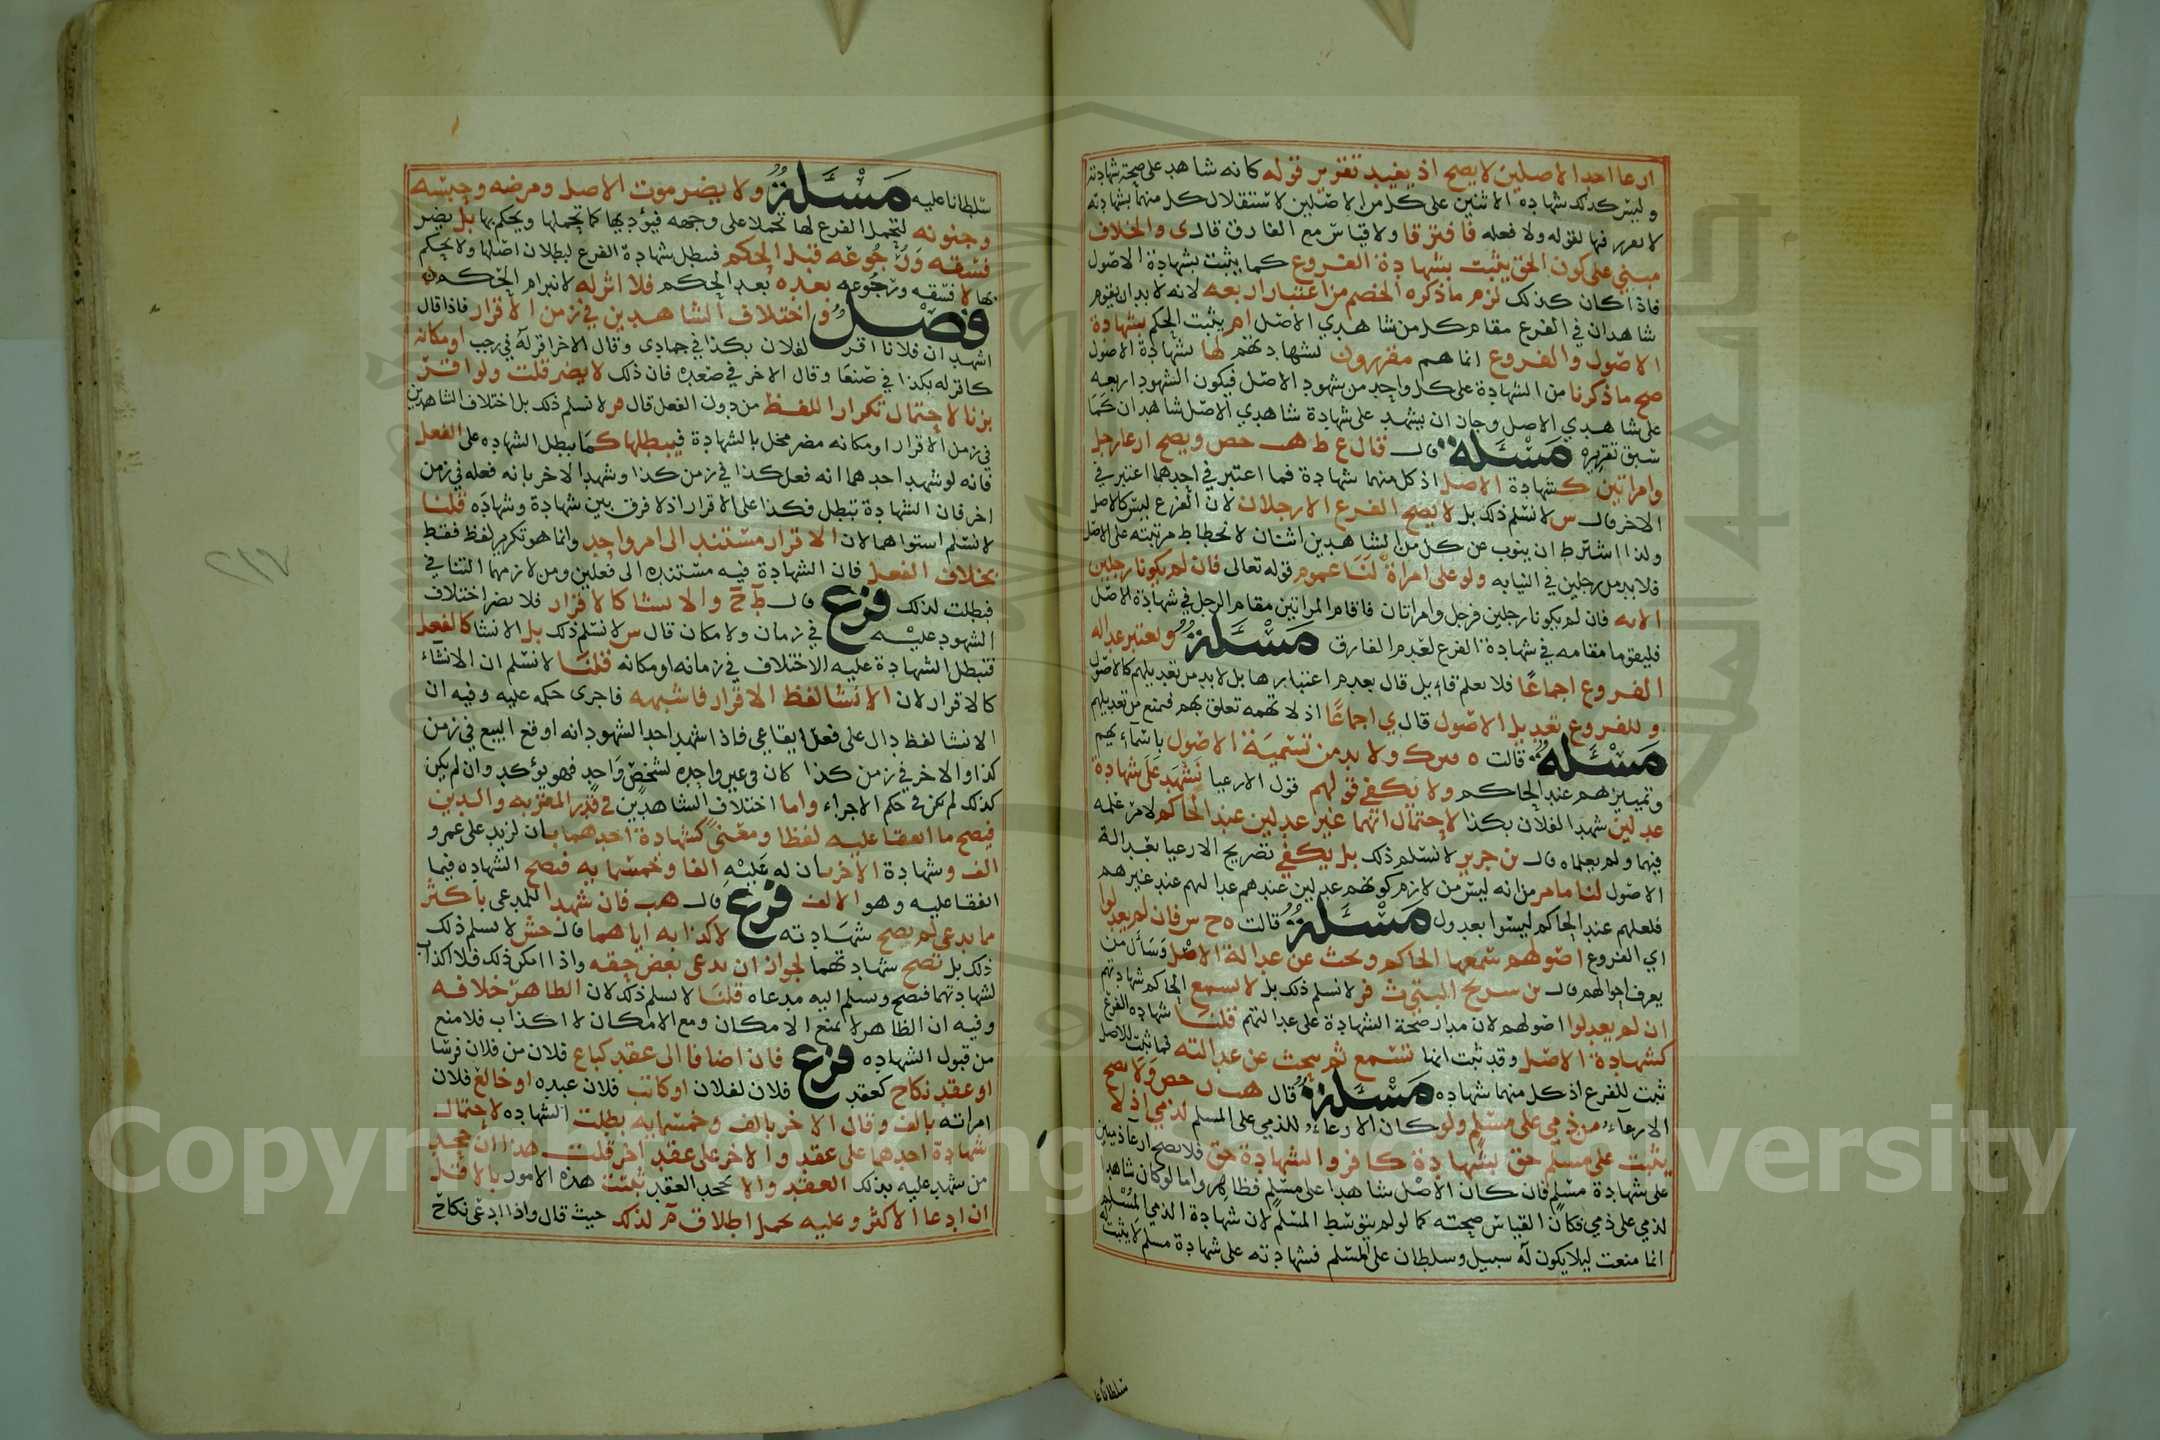 ارعا احد الاصلين لا يصح اذ يفيد تقرير قوله كانه شاهد على صحة شهادته
وليس كذلك شهادة الاثنين على كل من الاصلين لاستقلال كل منهما بشهادته
لا تقرير فيها لقوله ولا فعله فافترقا ولا قياس مع الفارق قال ى والخلاف
مبني على كون الحق يثبت بشهادة الفروع كما يثبت بشهادة الاصول
فاذا كان كذلك لزم ما ذكره الخصم من اعتبار اربعه لانه لا بد ان يقوم
شاهدان في الفرع مقام كل من شاهدي الاصل ام يثبت الحكم بشهادة
الاصول والفروع انما هم مقررون لشهادتهم لها لشهادة الاصول
صح ما ذكرنا من الشهادة على كل واحد من شهود الاصل فيكون الشهود اربعه
على شاهدي الاصل وجاز ان يشهد على شهادة شاهدي الاصل شاهدان كما
سبق تقريره مسئلة قال ع ط هب حص ويصح ارعا رجل
وامراتين كشهادة الاصل اذ كل منهما شهادة فما اعتبر في احدهما اعتبر في
الاخر قال س لا نسلم ذلك بل لا يصح الفرع الا رجلان لان الفرع ليس كالاصل
ولذا اشترط ان ينوب عن كل من الشاهدين اثنان لانحطاط مرتبته على الاصل
فلا بد من رجلين في النيابه ولو على امراة لنا عموم قوله تعالى فان لم يكونا رجلين
الايه فان لم يكونا رجلين فرجل وامراتان فاقام المراتين مقام الرجل في شهادة الاصل
فليقوما مقامه في شهادة الفرع لعدم الفارق مسئلة ويعتبر عدالة
الفروع اجماعا فلا نعلم قائل قال بعدم اعتبارها بل لا بد من تعديلهم كالاصول
وللفروع تعديل الاصول قال ي اجماعا اذ لا تهمه تعلق بهم فتمنع من تعديلهم
مسئلة قالت ولا بد من تسمية الاصول باسمائهم
وتمييزهم عند الحاكم ولا يكفي قولهم قول الارعيا نشهد على شهادة
عدلين شهدا لفلان بكذا لاحتمال انهما غير عدلين عند الحاكم لامر علمه
فيهما ولم يعلماه قال بن جرير لا نسلم ذلك بل يكفي تصريح الارعيا بعدالة
الاصول لنا ما مر من انه ليس من لازم كونهم عدلين عندهم عدالتهم عند غيرهم
فلعلهم عند الحاكم ليسوا بعدول مسئلة قالت ه ح س فان لم يعدلوا
اي الفروع اصولهم سمعها الحاكم وبحث عن عدالة الاصل وسأل من
يعرف احوالهم قال بن سريج البتي ث فر لا نسلم ذلك بل لا يسمع الحاكم شهادتهم
ان لم يعدلوا اصولهم لان مدار صحة الشهادة على عدالتهم قلنا شهادة الفرع
كشهادة الاصل وقد ثبت انها تسمع ثم يبحث عن عدالته فما ثبت للاصل
ثبت للفرع اذ كل منهما شهاده مسئلة قال هب ن حص ولا يصح
الارعاء من ذمي على مسلم ولو كان الارعاء للذمي على المسلم لذمي اذ لا
يثبت على مسلم حق بشهادة كافر والشهادة حق فلا يصح ارعا ذميين
على شهادة مسلم فان كان الاصل شاهدا على مسلم فظاهر واما لو كان شاهدا
لذمي على ذمي فكان القياس صحته كما لو لم يتوسط المسلم لان شهادة الذمي المسلم
انما منعت ليلا يكون له سبيل وسلطان على المسلم فشهادته على شهادة مسلم لا يثبت له
سلطانا عليه
سلطانا عليه مسئلة ولا يضر موت الاصل ومرضه وحبسه
وجنونه لتحمل الفرع لها تحملا على وجهه فيؤديها كما تحملها ويحكم بها بل يضر
فسقه ورجوعه قبل الحكم فتبطل شهادة الفرع لبطلان اصلها ولا يحكم
بها لا فسقه ورجوعه بعده بعد الحكم فلا اثر له لانبرام الحكم
فصل واختلاف الشاهدين في زمن الاقرار فاذا قال
اشهد ان فلانا اقر لفلان بكذا في جمادى وقال الاخر اقر له في رجب او مكانه
كاقر له بكذا في صنعا وقال الاخر في صعده فان ذلك لا يضر قلت ولو اقر
بزنا لاحتمال تكرار اللفظ من دون الفعل قال فر لا نسلم ذلك بل اختلاف الشاهدين
في زمن الاقرار او مكانه مضر مخل بالشهادة فيبطلها كما يبطل الشهاده على الفعل
فانه لو شهد احدهما انه فعل كذا في زمن كذا وشهد الاخر بانه فعله في زمن
اخر فان الشهادة تبطل فكذا على الاقرار اذ لا فرق بين شهادة وشهاده قلنا
لا نسلم استواهما لان الاقرار مستند الى امر واحد وانما هو تكرير لفظ فقط
بخلاف الفعل فان الشهادة فيه مستنده الى فعلين ومن لازمهما التنافي
فبطلت لذلك فرع قال ط ح والانشا كالاقرار فلا يضر اختلاف
الشهود عليه في زمان ولا مكان قال س لا نسلم ذلك بل الانشا كالفعل
فتبطل الشهادة عليه الاختلاف في زمانه او مكانه قلنا لا نسلم ان الانشاء
كالاقرار لان الانشا لفظ الاقرار فاشبهه فاجرى حكمه عليه وفيه ان
الانشا لفظ دال على فعل ايقاعي فاذا شهد احد الشهود انه اوقع البيع في زمن
كذا والاخر في زمن كذا كان في عين واحدة لشخص واحد فهو يؤكد وان لم يكن
كذلك لم يكن في حكم الاجراء واما اختلاف الشاهدين في قدر المقر به والدين
فيصح ما اتفقا عليه لفظا ومعنى كشهادة احدهما بان لزيد على عمرو
الف وشهادة الاخر بان له عليه الفا وخمسمايه فتصح الشهاده فيما
اتفقا عليه وهو الالف فرع قال هب فان شهدا للمدعي باكثر
مما يدعي لم يصح شهادته لاكذابه اياهما قال حش لا نسلم ذلك
ذلك بل تصح شهادتهما لجواز ان يدعي بعض حقه واذا امكن ذلك فلا اكذاب
لشهادتهما فتصح ويسلم اليه مدعاه قلنا لا نسلم ذلك لان الظاهر خلافه
وفيه ان الظاهر لا يمنع الامكان ومع الامكان لا اكذاب فلا منع
من قبول الشهاده فرع فان اضافا الى عقد كباع فلان من فلان فرسا
او عقد نكاح كعقد فلان لفلان او كاتب فلان عبده او خالع فلان
امراته بالف وقال الاخر بالف وخمسمايه بطلت الشهاده لاحتمال
شهادة احدهما على عقد والاخر على عقد اخر قلت هذا ان جحد
من شهد عليه بذلك العقد والا يجحد العقد ثبتت هذه الامور بالاقل
ان ادعا الاكثر وعليه يحمل اطلاق م لذلك حيث قال واذا ادعى نكاح